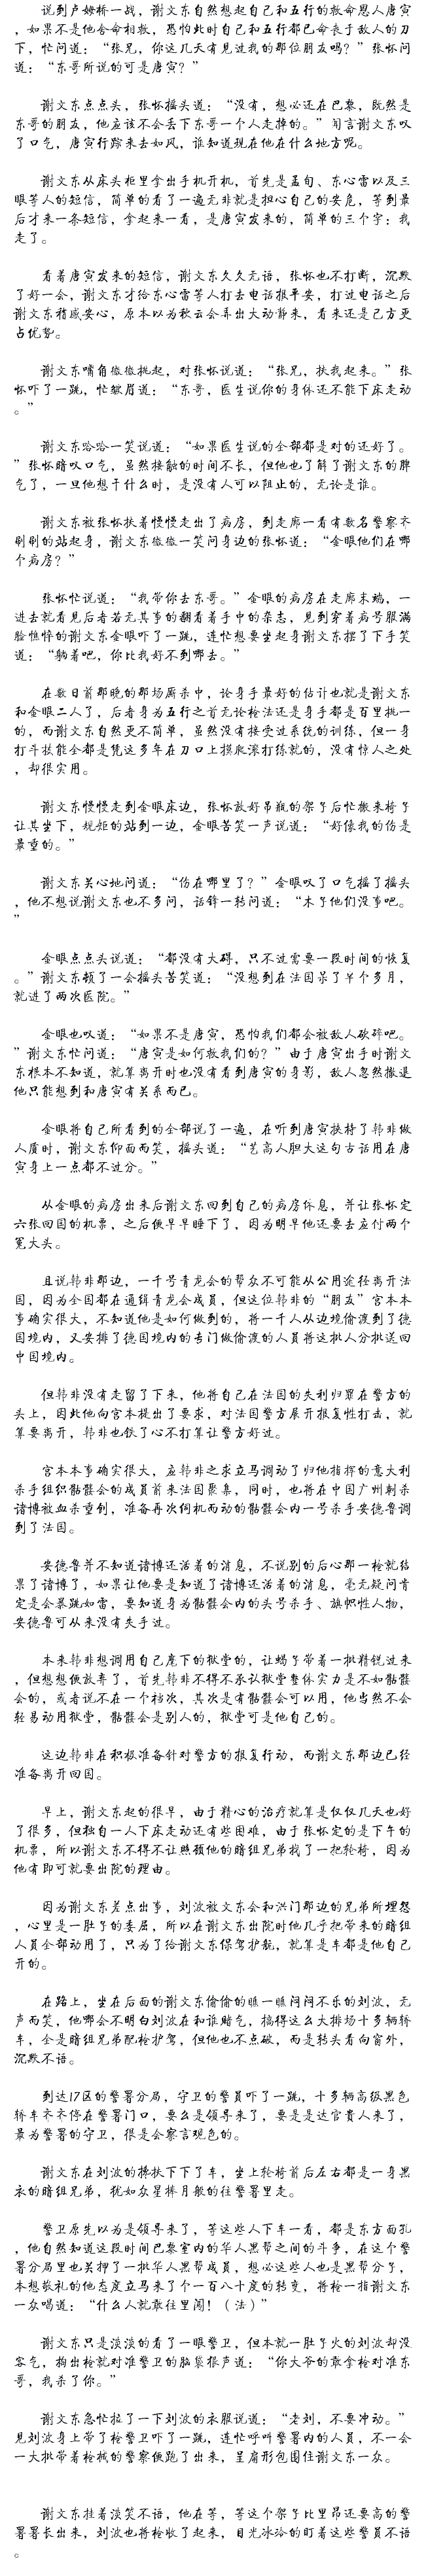 说到卢姆桥一战，谢文东自然想起自己和五行的救命恩人唐寅
，如果不是他舍命相救，恐怕此时自己和五行都已命丧于敌人的刀
下，忙问道：“张兄，你这几天有见过我的那位朋友吗？”张怀问
道：“东哥所说的可是唐寅？”
谢文东点点头，张怀摇头道：“没有，想必还在巴黎，既然是
东哥的朋友，他应该不会丢下东哥一个人走掉的。”闻言谢文东叹
了口气，唐寅行踪来去如风，谁知道现在他在什么地方呢。
谢文东从床头柜里拿出手机开机，首先是孟旬、东心雷以及三
眼等人的短信，简单的看了一遍无非就是担心自己的安危，等到最
后才来一条短信，拿起来一看，是唐寅发来的，简单的三个字：我
走了。
看着唐寅发来的短信，谢文东久久无语，张怀也不打断，沉默
了好一会，谢文东才给东心雷等人打去电话报平安，打过电话之后
谢文东稍感安心，原本以为秋云会弄出大动静来，看来还是己方更
占优势。
谢文东嘴角微微挑起，对张怀说道：“张兄，扶我起来。”张
怀吓了一跳，忙皱眉道：“东哥，医生说你的身体还不能下床走动
。”
谢文东哈哈一笑说道：“如果医生说的全部都是对的还好了。
”张怀暗叹口气，虽然接触的时间不长，但他也了解了谢文东的脾
气了，一旦他想干什么时，是没有人可以阻止的，无论是谁。
谢文东被张怀扶着慢慢走出了病房，到走廊一看有数名警察齐
刷刷的站起身，谢文东微微一笑问身边的张怀道：“金眼他们在哪
个病房？”
张怀忙说道：“我带你去东哥。”金眼的病房在走廊末端，一
进去就看见后者若无其事的翻看着手中的杂志，见到穿着病号服满
脸憔悴的谢文东金眼吓了一跳，连忙想要坐起身谢文东摆了下手笑
道：“躺着吧，你比我好不到哪去。”
在数日前那晚的那场厮杀中，论身手最好的估计也就是谢文东
和金眼二人了，后者身为五行之首无论枪法还是身手都是百里挑一
的，而谢文东自然更不简单，虽然没有接受过系统的训练，但一身
打斗技能全都是凭这多年在刀口上摸取滚打练就的，没有惊人之处
，却很实用。
谢文东慢慢走到金眼床边，张怀放好吊瓶的架子后忙搬来椅子
让其坐下，规矩的站到一边，金眼苦笑一声说道：“好像我的伤是
最重的。”
谢文东关心地问道：“伤在哪里了？”金眼叹了口气摇了摇头
，他不想说谢文东也不多问，话锋一转问道：“木子他们没事吧。
”
金眼点点头说道：“都没有大碍，只不过需要一段时间的恢复
。”谢文东顿了一会摇头苦笑道：“没想到在法国呆了半个多月，
就进了两次医院。”
金眼也叹道：“如果不是唐寅，恐怕我们都会被敌人砍碎吧。
”谢文东忙问道：“唐寅是如何救我们的？”由于唐寅出手时谢文
东根本不知道，就算离开时也没有看到唐寅的身影，敌人忽然撤退
他只能想到和唐寅有关系而已。
金眼将自己所看到的全部说了一遍，在听到唐寅挟持了韩非做
人质时，谢文东仰面而笑，摇头道：“艺高人胆大这句古话用在唐
寅身上一点都不过分。”
从金眼的病房出来后谢文东回到自己的病房休息，并让张怀定
六张回国的机票，之后便早早睡下了，因为明早他还要去应付两个
冤大头。
且说韩非那边，一千号青龙会的帮众不可能从公用途径离开法
国，因为全国都在通缉青龙会成员，但这位韩非的“朋友”宫本本
事确实很大，不知道他是如何做到的，将一千人从边境偷渡到了德
国境内，又安排了德国境内的专门做偷渡的人员将这批人分批送回
中国境内。
但韩非没有走留了下来，他将自己在法国的失利归罪在警方的
头上，因此他向宫本提出了要求，对法国警方展开报复性打击，就
算要离开，韩非也铁了心不打算让警方好过。
宫本本事确实很大，应韩非之求立马调动了归他指挥的意大利
杀手组织骷髅会的成员前来法国聚集，同时，也将在中国广州刺杀
诸博被血杀重创，准备再次伺机而动的骷髅会内一号杀手安德鲁调
到了法国。
安德鲁并不知道诸博还活着的消息，不说别的后心那一枪就结
果了诸博了，如果让他要是知道了诸博还活着的消息，毫无疑问肯
定是会暴跳如雷，要知道身为骷髅会内的头号杀手、旗帜性人物，
安德鲁可从来没有失手过。
本来韩非想调用自己麾下的狱堂的，让蝎子带着一批精锐过来
，但想想便放弃了，首先韩非不得不承认狱堂整体实力是不如骷髅
会的，或者说不在一个档次，其次是有骷髅会可以用，他当然不会
轻易动用狱堂，骷髅会是别人的，狱堂可是他自己的。
这边韩非在积极准备针对警方的报复行动，而谢文东那边已经
准备离开回国。
早上，谢文东起的很早，由于精心的治疗就算是仅仅几天也好
了很多，但独自一人下床走动还有些困难，由于张怀定的是下午的
机票，所以谢文东不得不让照顾他的暗组兄弟找了一把轮椅，因为
他有即可就要出院的理由。
因为谢文东差点出事，刘波被文东会和洪门那边的兄弟所埋怨
，心里是一肚子的委屈，所以在谢文东出院时他几乎把带来的暗组
人员全部动用了，只为了给谢文东保驾护航，就算是车都是他自己
开的。
在路上，坐在后面的谢文东偷偷的瞧一瞧闷闷不乐的刘波，无
声而笑，他哪会不明白刘波在和谁赌气，搞得这么大排场十多辆轿
车，全是暗组兄弟配枪护驾，但他也不点破，而是转头看向窗外，
沉默不语。
到达17区的警署分局，守卫的警员吓了一跳，十多辆高级黑色
轿车齐齐停在警署门口，要么是领导来了，要是是达官贵人来了，
最为警署的守卫，很是会察言观色的。
谢文东在刘波的搀扶下下了车，坐上轮椅前后左右都是一身黑
衣的暗组兄弟，犹如众星捧月般的往警署里走。
警卫原先以为是领导来了，等这些人下车一看，都是东方面孔
，他自然知道这段时间巴黎室内的华人黑帮之间的斗争，在这个警
署分局里也关押了一批华人黑帮成员，想必这些人也是黑帮分子，
本想敬礼的他态度立马来了个一百八十度的转变，将枪一指谢文东
一众喝道：“什么人就敢往里闯！（法）”
谢文东只是淡淡的看了一眼警卫，但本就一肚子火的刘波却没
客气，掏出枪就对准警卫的脑袋狠声道：“你大爷的敢拿枪对准东
哥，我杀了你。”
谢文东急忙拉了一下刘波的衣服说道：“老刘，不要冲动。”
见刘波身上带了枪警卫吓了一跳，连忙呼叫警署内的人员，不一会
一大批带着枪械的警察便跑了出来，呈扇形包围住谢文东一众。
谢文东挂着淡笑不语，他在等，等这个架子比里昂还要高的警
署署长出来，刘波也将枪收了起来，目光冰冷的盯着这些警员不语
。